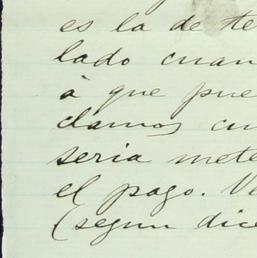 es la de te
lado cuan
á que pue
damos cu
seria mete
el pago. Ve
(segun dice